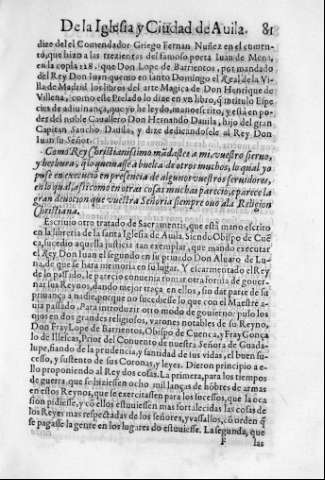 De la Iglesia y Ciudad de Auila. 81
dize del el Comendador Griego Fernan Nuñez en el comen-
to, que hizo a las trezientas del famoso poeta Iuan de Mena,
en la copla 128. que Don Lope de Barrientos, por mandado
del Rey Don Iuan quemo en santo Domingo el Real de la Vi-
lla de Madrid los libros del arte Magica de Don Henrique de
Villena, como este Prelado lo dize en vn libro, q̃ intitulo Espe-
cies de adiuinança, que yo he leydo, manoescrito, y està en po-
der del noble Cauallero Don Hernando Dauila, hijo del gran
Capitan Sancho Dauila, y dize dedicandosele al Rey Don
Iuan su Señor.
Como Rey Christianissimo mãdastes a mi, vuestro sieruo,
y hechura, q̃ lo quemasse a buelta de otros muchos, lo qual yo
puse en execuciõ en presencia de algunos vuestros seruidores,
en lo qual, assi como en otras cosas muchas parecio, y parece la
gran deuocion que vuestra Señoria siempre ouo a la Religion
Christiana.
Escriuio otro tratado de Sacramentis, que està mano escrito
en la libreria de la santa Iglesia de Auila. Siendo Obispo de Cuē
ca, sucedio aquella justicia tan exemplar, que mando executar
el Rey Don Iuan el segundo en su priuado Don Aluaro de Lu-
na, de que se hara memoria en su lugar. Y escarmentado el Rey
de lo passado, le parecio conuenia tomar otra forma de gouer-
nar sus Reynos, dando mejor traça en ellos, sin dar parte de su
priuança a nadie, porque no sucediesse lo que con el Maestre a-
uia passado. Para introduzir otro modo de gouierno, puso los
ojos en dos grandes religiosos, varones notables de su Reyno,
Don Fray Lope de Barrientos, Obispo de Cuenca, y Fray Gonça
lo de Illescas, Prior del Conuento de nuestra Señora de Guada-
lupe, fiando de la prudencia, y santidad de sus vidas, el buen su-
cesso, y sustento de sus Coronas, y leyes. Dieron principio a e-
llo proponiendo al Rey dos cosas. La primera, para los tiempos
de guerra, que se hiziessen ocho mil lanças de hõbres de armas
en estos Reynos, que se exercitassen para los sucessos, que la oca
sion pidiesse, y cõ ellos estuuiessen mas fortalecidas las cosas de
los Reyes mas respectadas de los señores, y vassallos, cõ orden q̃
se pagasse la gente en los lugares do estouiesse. La segunda, que
F las